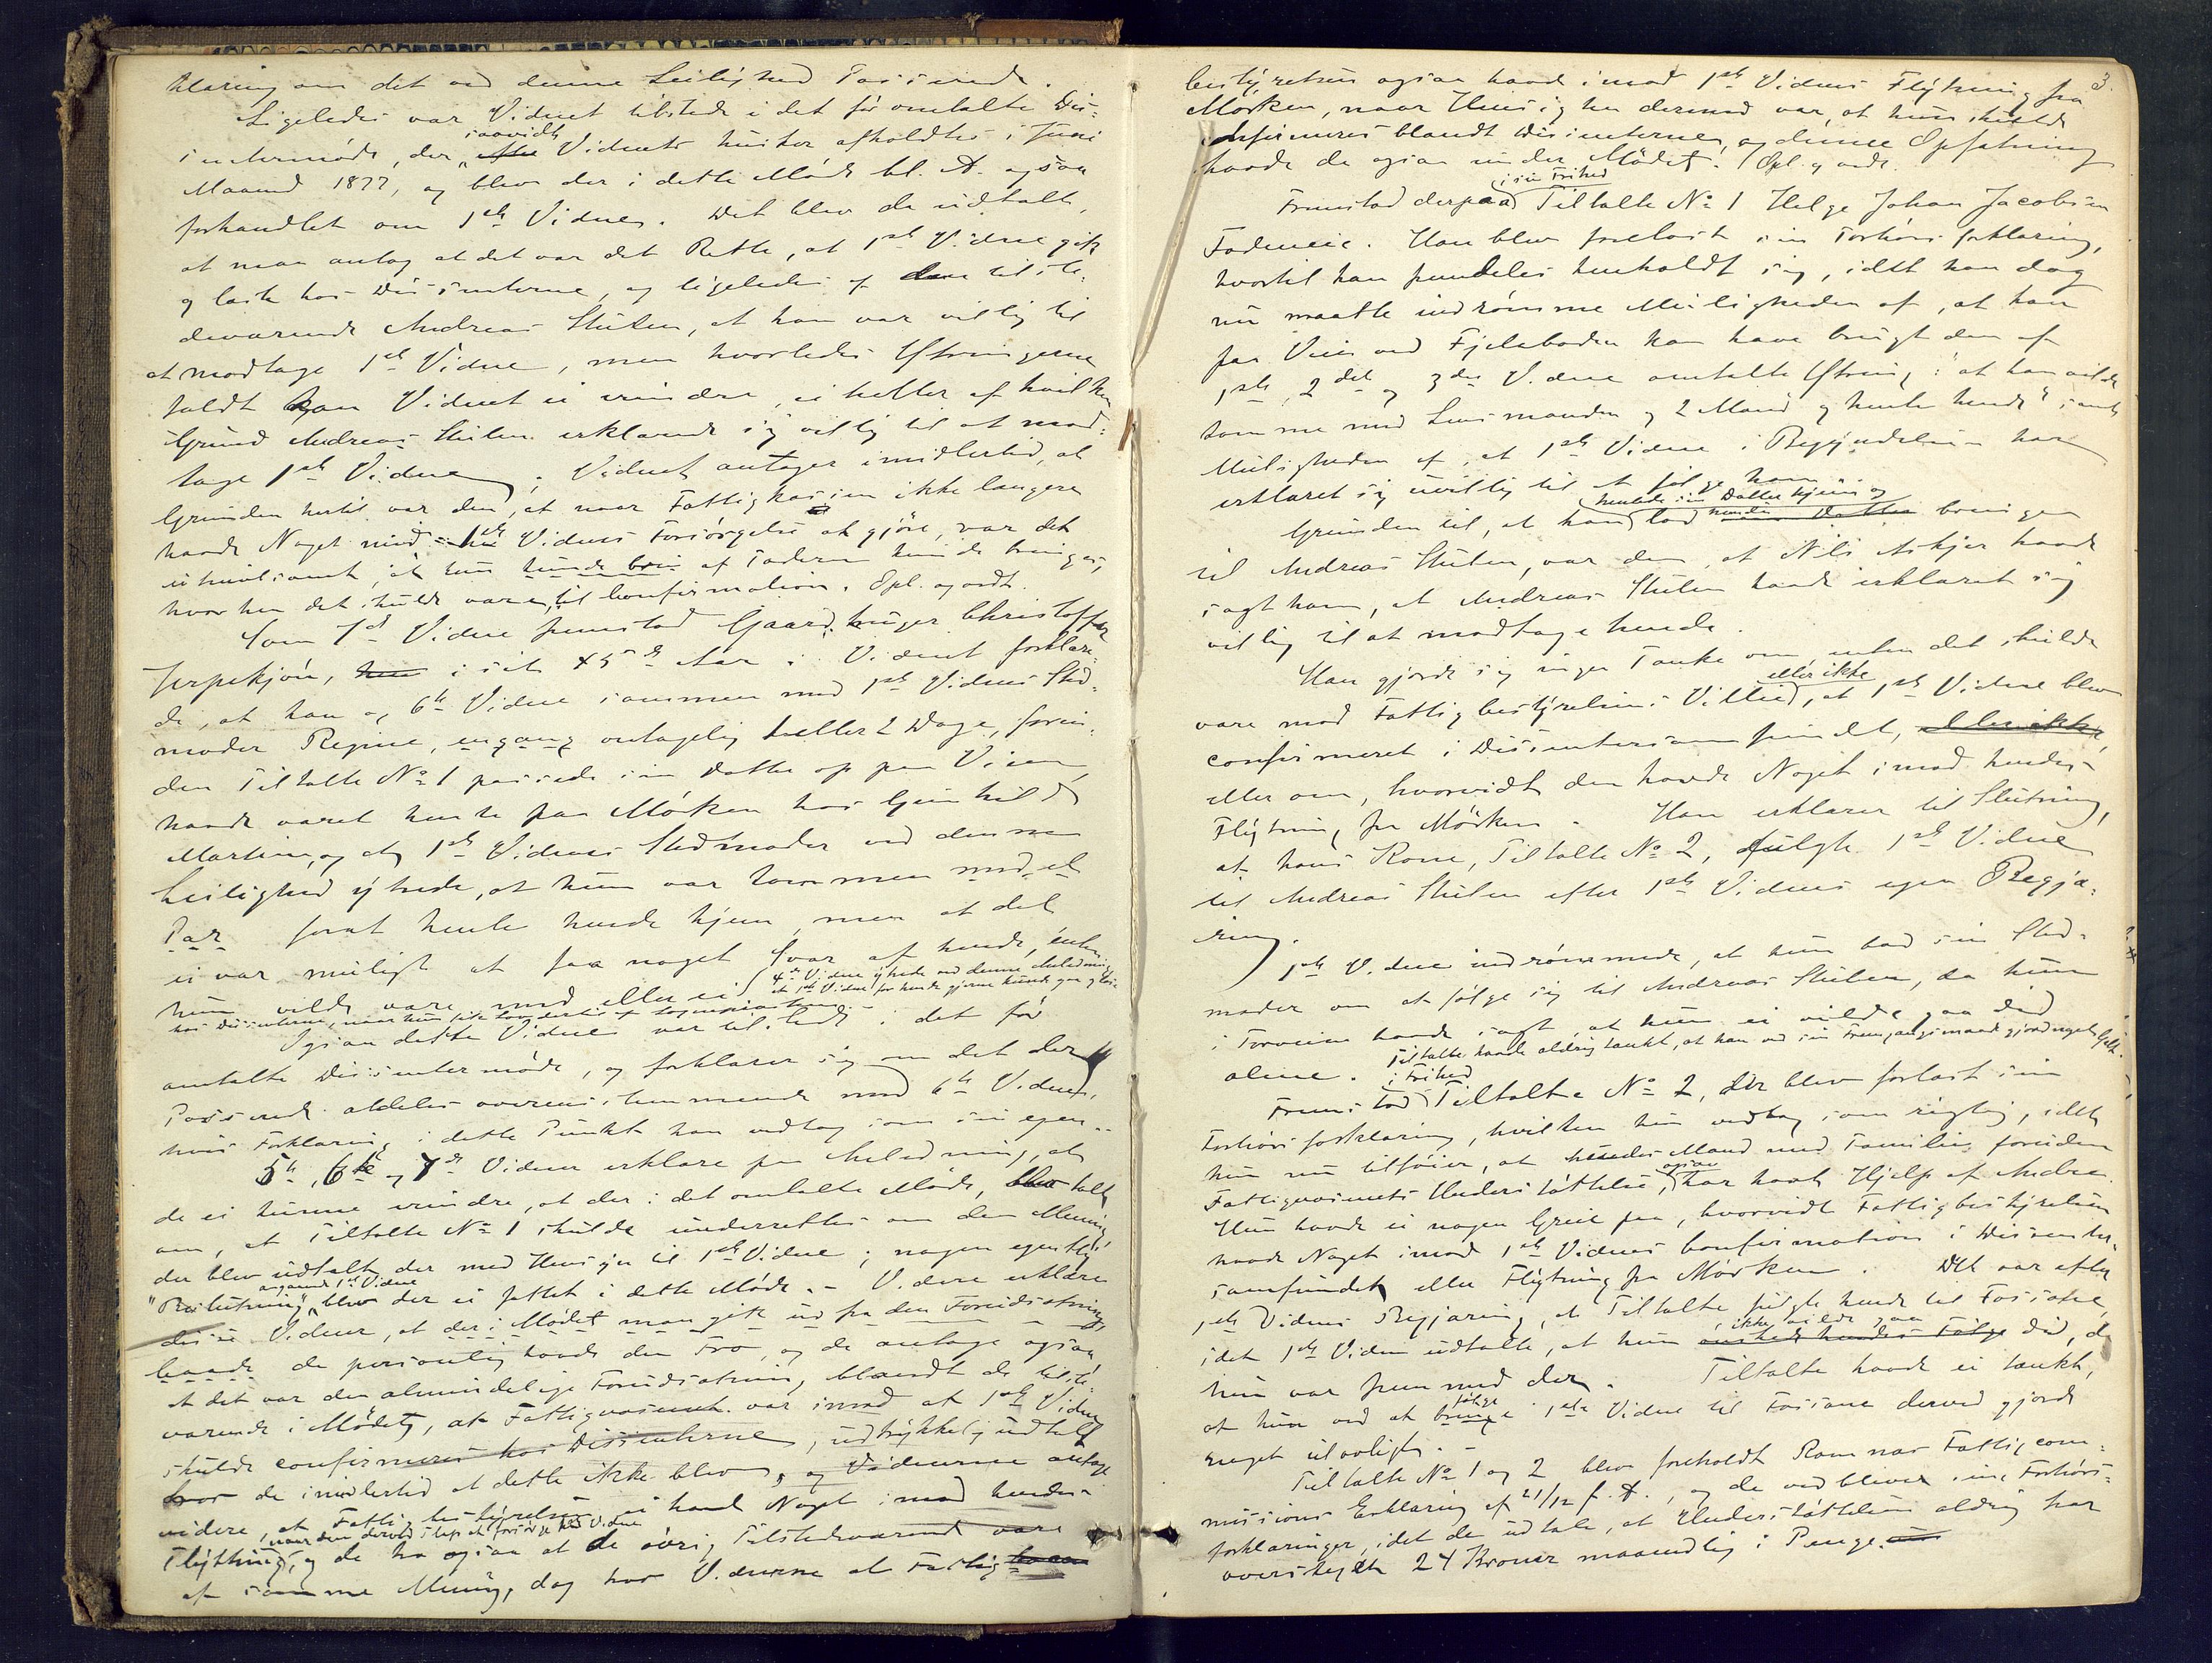 klaring om det ved denne Leilighed Passerede.
Ligeledes var Vidnet tilstede i det før omtalte Dis-
sentermøde, der saavidt Vidnet husker afholdtes i Juni
Maaned 1877, og blev der i dette Møde bl. A. ogsaa
forhandlet om 1ste Vidne. Det blev da udtalt,
at man antog at det var det Rette, at 1ste Vidne gik
og læste hos Dissenterne, og ligeledes af den tilste-
deværende Andreas Stulen, at han var villig til
at modtage 1ste Vidne, men hvorledes Ytringerne
faldt kan Vidnet ei erindre, ei heller af hvilken
Grund Andreas Stulen erklærede sig villig til at mod-
tage 1ste Vidne; Vidnet antager imidlertid, at
Grunden hertil var den, at naar Fattigkassen ikke længere
havde Noget med 1ste Vidnes Forsørgelse at gjøre, var det
utvivlsomt, at hun kunde af Faderen kunde bringes,
hvor hen det skulde være, til Confirmation. Opl. og vedt.
Som 7de Vidne fremstod Gaardbruger Christoffer
Jerpekjøn, i sit 45de Aar. Vidnet forklare-
de, at han og 6te Vidne sammen med 1ste Vidnes Sted-
moder Regine, engang antagelig heller 2 Dage, foren-
den Tiltalte No 1 passede sin Datter op paa Veien,
havde været henne paa Mörken hos Gunhild
Martin, og at 1ste Vidnes Stedmoder ved denne
Leilighed ytrede, at hun var kommen med et
Par forat hente hende hjem, men at det
ei var muligt at faa noget Svar af hende, enten
hun vilde være med eller ei. 4de Vidne ytrede ved denne Anledning,
at 1ste Vidne for hende gjerne kunde gaa og læse
hos Dissenterne, naar hun fik Lov dertil af Sognepræsten.
Ogsaa dette Vidne var tilstede i det før
omtalte Dissentermøde, og forklarer sig om det der
Passerede aldeles overensstemmende med 6te Vidne,
hvis Forklaring i dette Punkt han vedtog som sin egen.
5te, 6te og 7de Vidne erklare paa Anledning, at
de ei kunne erindre, at der i det omtalte Møde, blev talt
om, at Tiltalte No 1 skulde underrettes om den Mening,
der blev udtalt der med Hensyn til 1ste Vidne; nogen egentlig
"Beslutning" angaaende 1ste Vidne blev der ei fattet i dette Møde. – Videre erklære
disse Vidner, at der i Mødet man gik ud fra den Forudsætning,
de personlig havde den Tro, og de antage ogsaa
at det var den almindelige Forudsætning blandt de tilste-
værende i Mødet, at Fattigvæsenet var imod at 1ste Vidne
skulde confirmeres hos Dissenterne, udtrykkelig udtalt
tror de imidlertid at dette ikke blev, og Vidnerne antage
videre, at Fattigbestyrelsen ei havde Noget imod hendes
Flytning, naar den derved slap at forsørge 1ste Vidne og de tro ogsaa at de øvrig Tilstedeværende vare
af samme Mening, dog tror Vidnerne at Fattig-
3.
bestyrelsen ogsaa havde imod 1ste Vidnes Flytning fra
Mørken, naar Hensigten dermed var, at hun skulde
confirmeres blandt Dissenterne, og denne Opfatning
havde de ogsaa under Mødet. Opl. og vedt.
Fremstod derpaa i sin Frihed Tiltalte No 1 Helge Johan Jacobsen
Fodeneie. Han blev forelæst sin Forhørsforklaring,
hvortil han fremdeles henholdt sig, idet han dog
nu maatte indrømme Muligheden af, at han
paa Veien ved Fjeldboden kan have brugt den af
1ste, 2det og 3die Vidne omtalte Ytring: "at han vilde
komme med Lensmanden og 2 Mand og hente hende" samt
Muligheden af, at 1ste Vidne i Begyndelsen har
erklæret sig uvillig til at følge ham.
Grunden til, at han hentede sin Datter hjem og lod hende bringes
til Andreas Stulen, var den, at Nils Askjer havde
sagt ham, at Andreas Stulen havde erklæret sig
villig til at modtage hende.
Han gjorde sig ingen Tanke om, enten det skulde
være mod Fattigbestyrelsens Villie eller ikke, at 1ste Vidne blev
confirmeret i Dissentersamfundet, eller ikke,
eller om, hvorvidt den havde Noget imod hendes
Flytning fra Mörken. Han erklærer til Slutning,
at hans Kone, Tiltalte No 2, fulgte 1ste Vidne
til Andreas Stulen efter 1ste Vidnes egen Begjæ-
ring.
1ste Vidne indrømmede, at hun bad sin Sted-
moder om at følge sig til Andreas Stulen, da hun
i Forveien havde sagt, at hun ei vilde gaa did
alene. Tiltalte havde aldrig tænkt, at han ved sin Fremgangsmaade gjorde noget Galt.
Fremstod i Frihed Tiltalte No 2, der blev forelæst sin
Forhørsforklaring, hvilken hun vedtog som rigtig, idet
hun nu tilføier, at hendes Mand med Familie, foruden
Fattigvæsenets Understøttelse, ogsaa har havt Hjelp af Andre.
Hun havde ei nogen Greie paa, hvorvidt Fattigbestyrelsen
havde Noget imod 1ste Vidnes Confirmation i Dissenter-
samfundet eller Flytning fra Mörken. Det var efter
1ste Vidnes Begjæring, at Tiltalte fulgte hende til Fossane,
idet 1ste Vidne udtalte, at hun ikke vilde gaa did, da
hun var fremmed der. Tiltalte havde ei tænkt,
at hun ved at følge 1ste Vidne til Fossane derved gjorde
noget ulovligt. –
Tiltalte No 1 og 2 blev foreholdt Ramnæs Fattigcom-
missions Erklæring af 21/12 f. A., og de vedbliver sine Forhørs-
forklaringer, idet de udtale, at Understøttelsen aldrig har
oversteget 24 Kroner maanedlig i Penge.